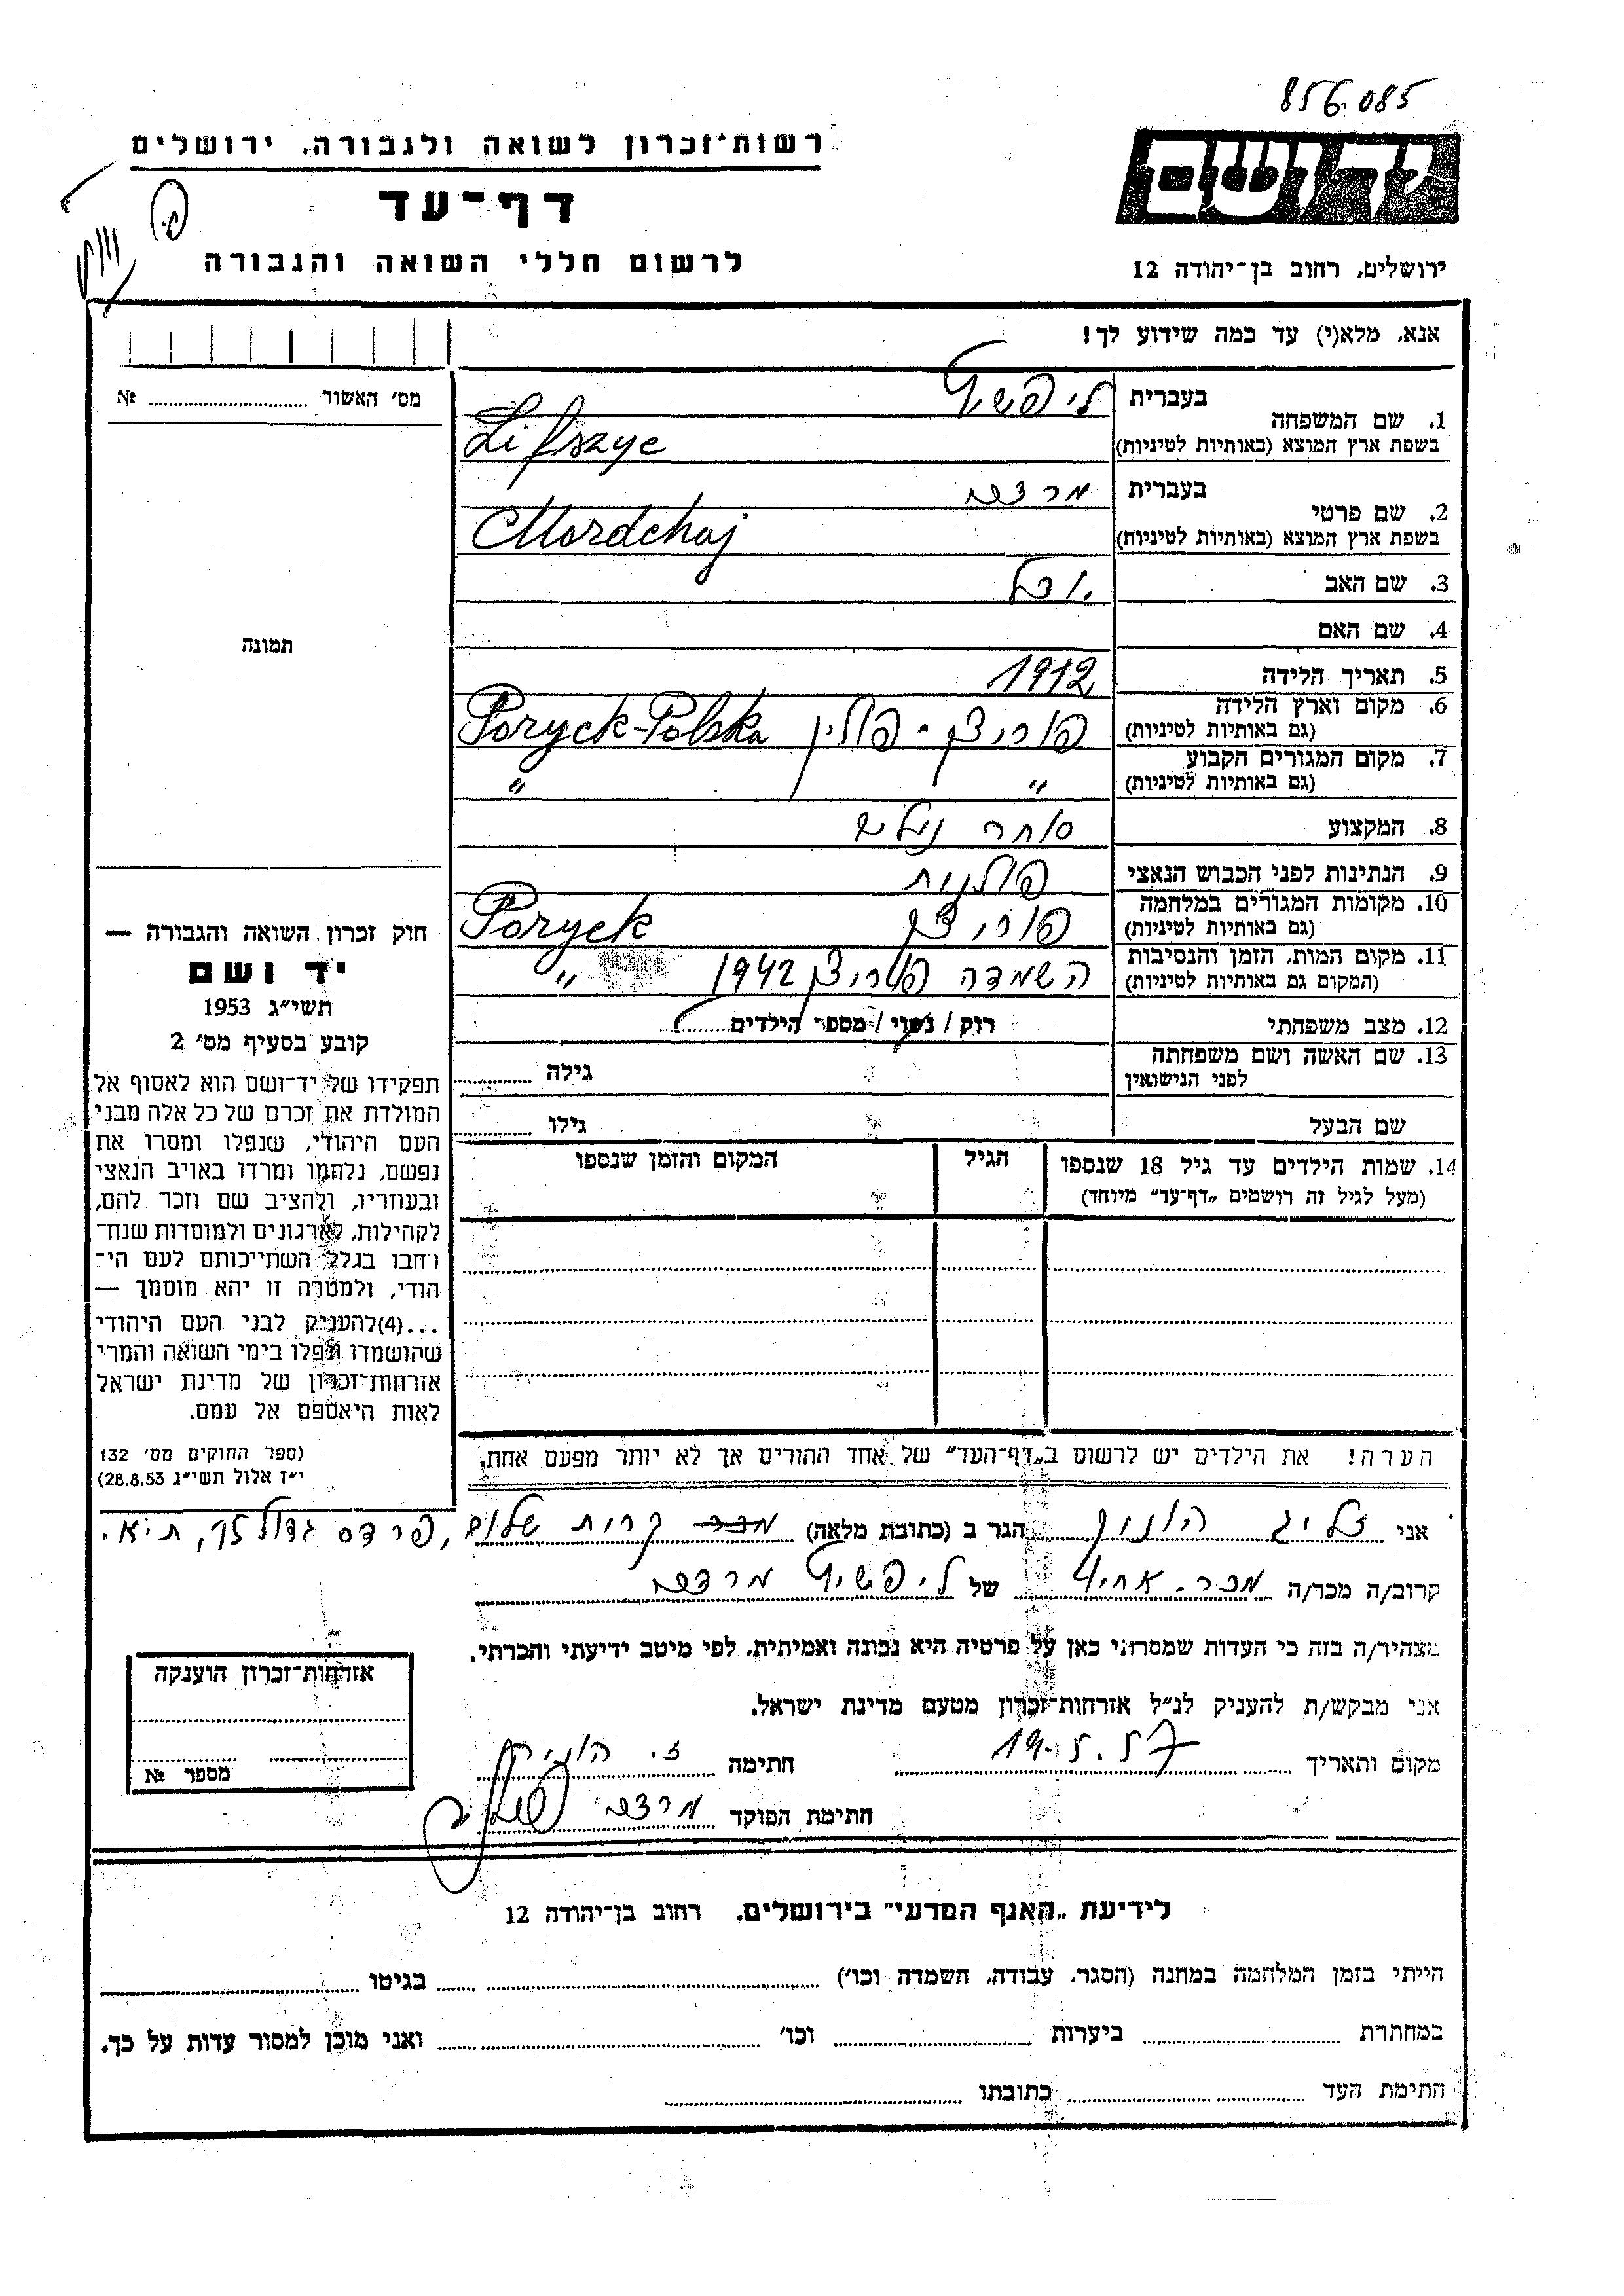 856.085
רשות־זכרון לשואה ולגבורה, ירושלים
יד ושם
דף־עד
לרשום חללי השואה והגבורה
ירושלים, רחוב בן־יהודה 12
אנא, מלא(י) עד כמה שידוע לך!
מס' האשור № 
1. שם המשפחה בעברית ליפשיץ
בשפת ארץ המוצא (באותיות לטיניות) Lifszyc
2. שם פרטי בעברית מרדכי
בשפת ארץ המוצא (באותיות לטיניות) Mordchaj
3. שם האב
4. שם האם
תמונה
5. תאריך הלידה 1912
6. מקום וארץ הלידה (גם באותיות לטיניות) פוריצק - פולין Poryck-Polska
7. מקום המגורים הקבוע (גם באותיות לטיניות) " "
8. המקצוע סוחר
9. הנתינות לפני הכבוש הנאצי פולנית
10. מקומות המגורים במלחמה (גם באותיות לטיניות) פוריצק Poryck
11. מקום המות, הזמן והנסיבות (המקום גם באותיות לטיניות) השמדה פוריצק 1942 "
12. מצב משפחתי רוק / נשוי / מספר הילדים
13. שם האשה ושם משפחתה לפני הנישואין גילה
שם הבעל גילו
14. שמות הילדים עד גיל 18 שנספו הגיל המקום והזמן שנספו
(מעל לגיל זה רושמים "דף־עד" מיוחד)
חוק זכרון השואה והגבורה —
יד ושם
תשי"ג 1953
קובע בסעיף מס' 2
תפקידו של יד־ושם הוא לאסוף אל
המולדת את זכרם של כל אלה מבני
העם היהודי, שנפלו ומסרו את
נפשם, נלחמו ומרדו באויב הנאצי
ובעוזריו, ולהציב שם וזכר להם,
לקהילות, לארגונים ולמוסדות שנח־
רבו בגלל השתייכותם לעם הי־
הודי, ולמטרה זו יהא מוסמך —
...(4)להעניק לבני העם היהודי
שהושמדו ונפלו בימי השואה והמרי
אזרחות־זכרון של מדינת ישראל
לאות היאספם אל עמם.
(ספר החוקים מס' 132
י"ז אלול תשי"ג 28.8.53)
הערה! את הילדים יש לרשום ב"דף־העד" של אחד ההורים אך לא יותר מפעם אחת.
אני זליג הוניק הגר ב (כתובת מלאה) קרית שלום, פרדס גדול
קרוב/ה מכר/ה מכר של ליפשיץ מרדכי
מצהיר/ה בזה כי העדות שמסרתי כאן על פרטיה היא נכונה ואמיתית, לפי מיטב ידיעתי והכרתי.
אני מבקש/ת להעניק לנ"ל אזרחות־זכרון מטעם מדינת ישראל.
מקום ותאריך 19.5.57 חתימה ז. הוניק
חתימת הפוקד מרדכי
אזרחות־זכרון הוענקה
מספר №
לידיעת "האגף המדעי" בירושלים, רחוב בן־יהודה 12
הייתי בזמן המלחמה במחנה (הסגר, עבודה, השמדה וכו') בגיטו
במחתרת ביערות וכו' ואני מוכן למסור עדות על כך.
חתימת העד כתובתו